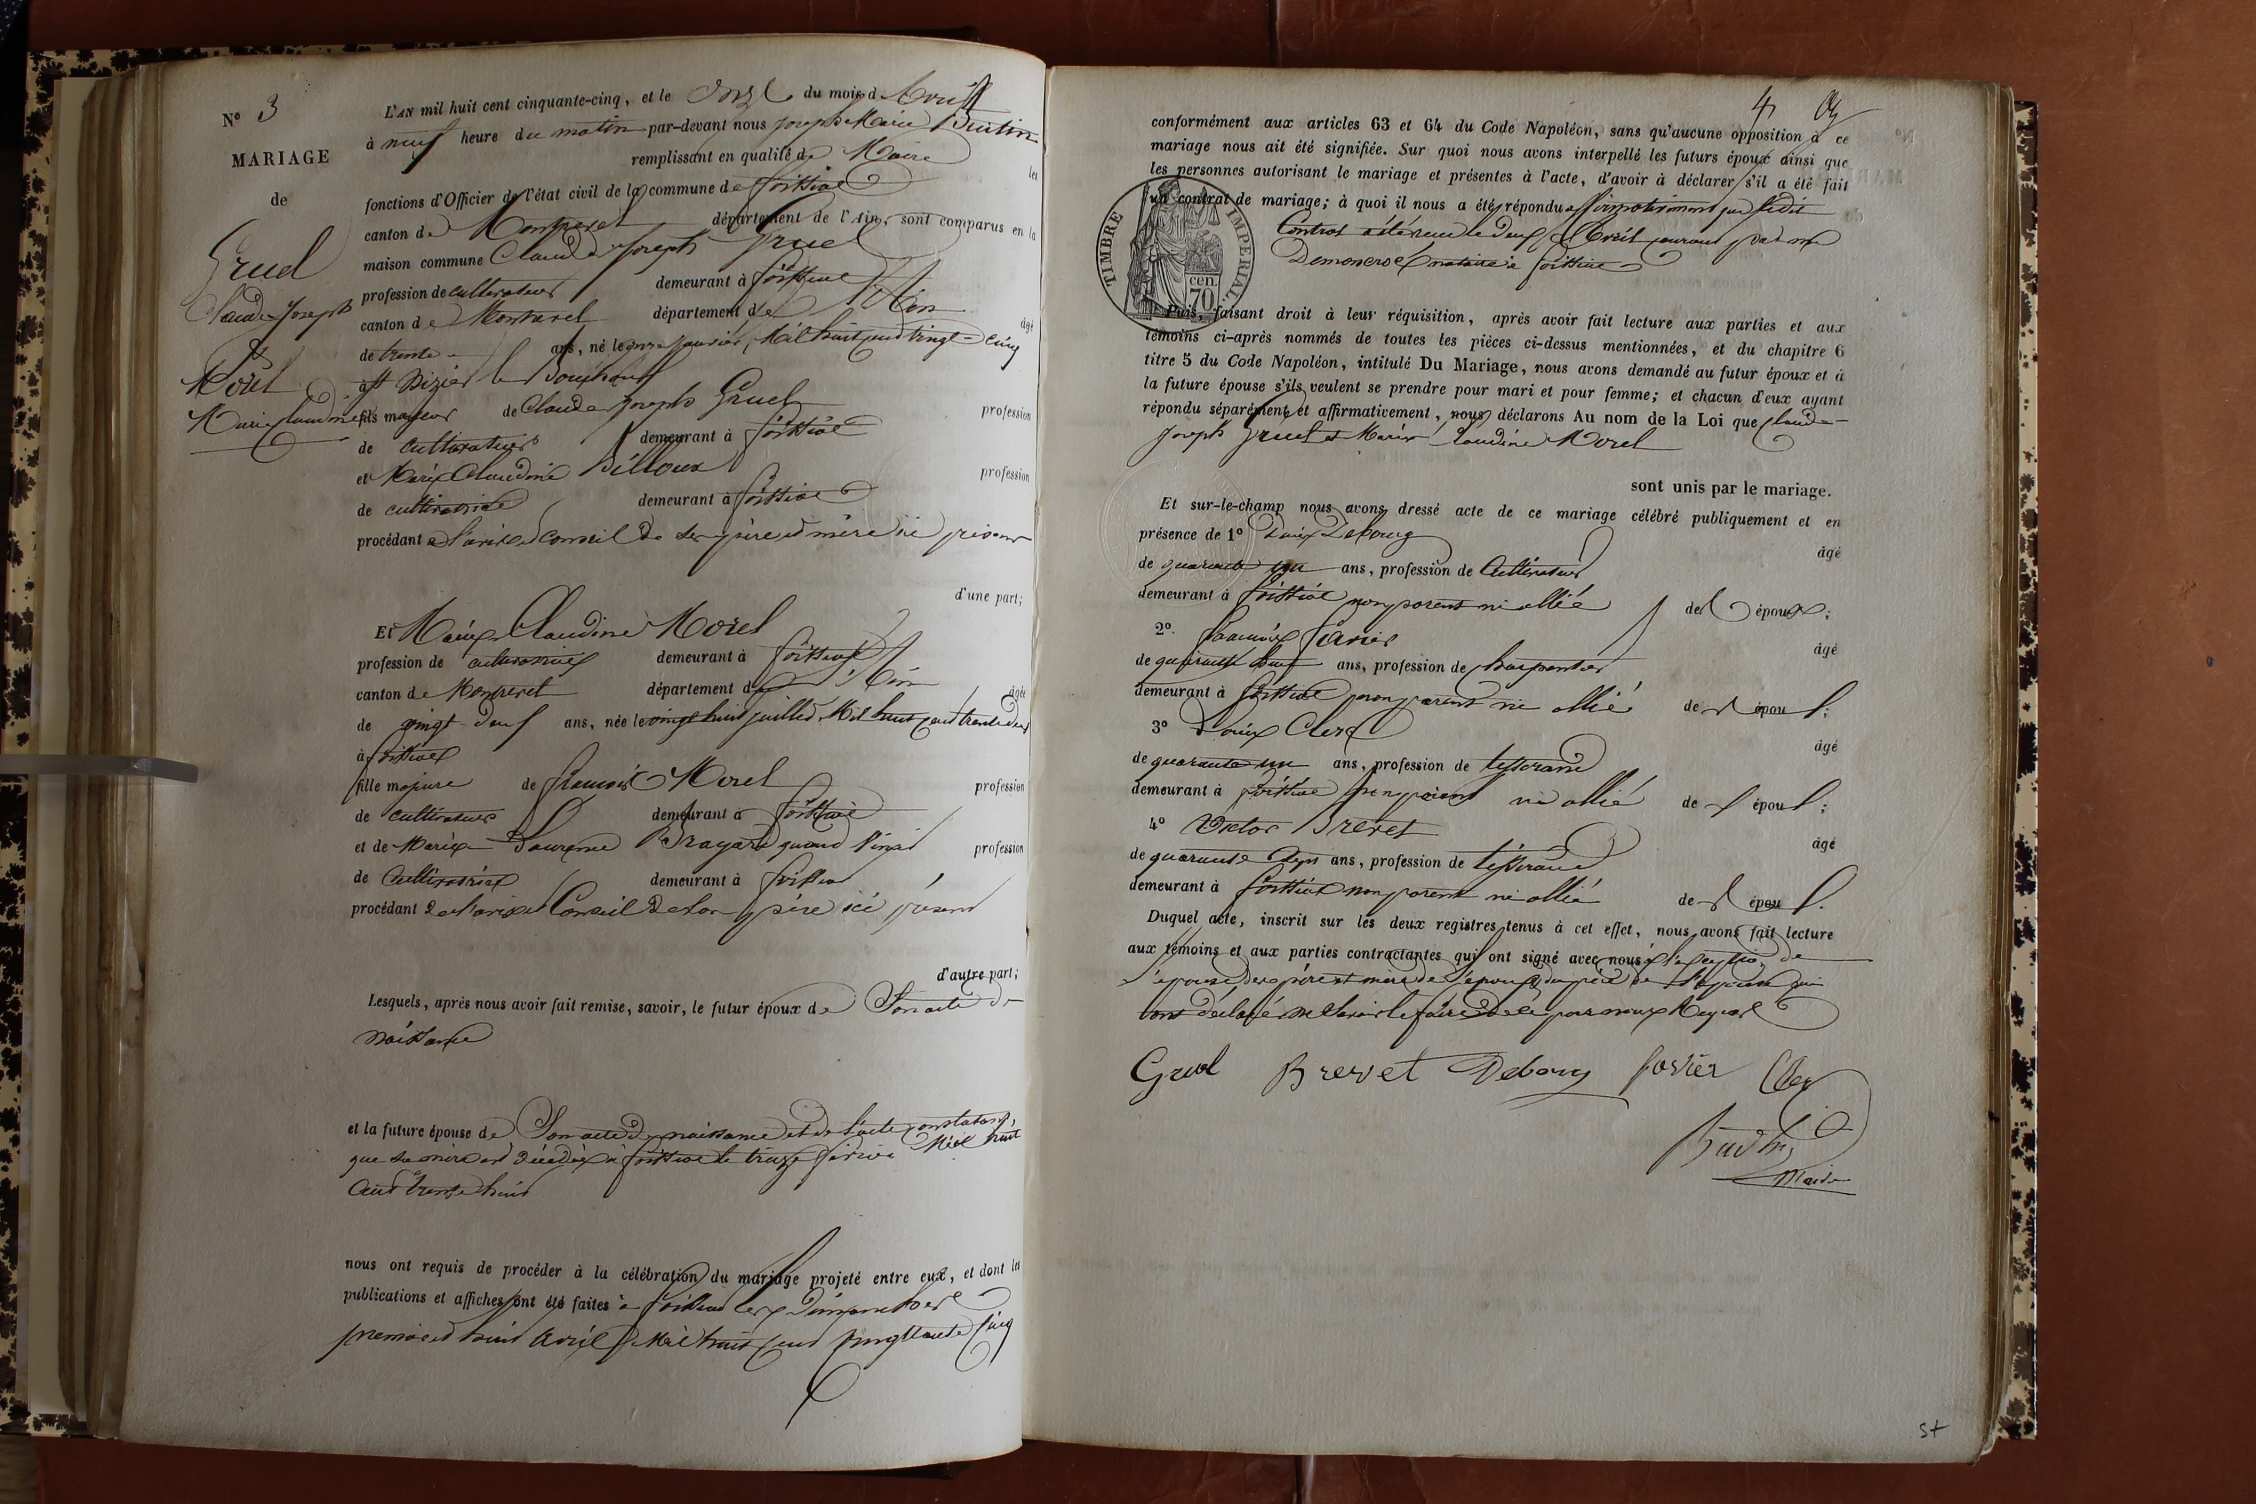 N° 3
MARIAGE
de
Gruel
Claude Joseph
&
Morel
Marie Claudine
L'AN mil huit cent cinquante-cinq, et le onze du mois d'Avril
à neuf heure du matin par-devant nous Joseph Marie Buitin
remplissant en qualité de Maire les
fonctions d'Officier de l'état civil de la commune de foissiat
canton de Montrevel département de l'Ain, sont comparus en la
maison commune Claude Joseph Gruel
profession de cultivateur demeurant à foissiat
canton de Montrevel département de l'Ain âgé
de trente ans, né le onze janvier, Mil huit cent vingt-cinq
à St Nizier le Bouchoux
fils majeur de Claude Joseph Gruel profession
de cultivateur demeurant à foissiat
et Marie Claudine Billoux profession
de cultivatrice demeurant à foissiat
procédant de l'avis et conseil de ses père et mère ici présens
d'une part;
Et Marie Claudine Morel
profession de cultivatrice demeurant à foissiat
canton de Montrevel département de l'Ain âgée
de vingt deux ans, née le vingt huit juillet, Mil huit cent trente deux
à foissiat
fille majeure de françois Morel profession
de cultivateur demeurant à foissiat
et de Marie Laurence Brayard quand vivait profession
de Cultivatrice demeurant à foissiat
procédant de l'avis et Conseil de son père ici présent
d'autre part;
Lesquels, après nous avoir fait remise, savoir, le futur époux de Son acte de
naissance
et la future épouse de Son acte de naissance et de l'acte constatant,
que sa mère est décédée à foissiat le treize février Mil huit
cent trente huit
nous ont requis de procéder à la célébration du mariage projeté entre eux, et dont les
publications et affiches ont été faites à foissiat les Dimanches
premier et huit Avril Mil huit cent cinquante cinq
4
conformément aux articles 63 et 64 du Code Napoléon, sans qu'aucune opposition à ce
mariage nous ait été signifiée. Sur quoi nous avons interpellé les futurs époux ainsi que
les personnes autorisant le mariage et présentes à l'acte, d'avoir à déclarer s'il a été fait
un contrat de mariage; à quoi il nous a été répondu affirmativement que ledit
Contrat a été reçu le deux Avril courant par me
notaire à foissiat
TIMBRE IMPERIAL
70 cen.
Puis, faisant droit à leur réquisition, après avoir fait lecture aux parties et aux
témoins ci-après nommés de toutes les pièces ci-dessus mentionnées, et du chapitre 6
titre 5 du Code Napoléon, intitulé Du Mariage, nous avons demandé au futur époux et à
la future épouse s'ils veulent se prendre pour mari et pour femme; et chacun d'eux ayant
répondu séparément et affirmativement, nous déclarons Au nom de la Loi que Claude
Joseph Gruel et Marie Claudine Morel
sont unis par le mariage.
Et sur-le-champ nous avons dressé acte de ce mariage célébré publiquement et en
présence de 1° Louis Debourg âgé
de quarante un ans, profession de Cultivateur
demeurant à foissiat non parent ni allié de l'époux;
2°. françois favier âgé
de quarante huit ans, profession de charpentier
demeurant à foissiat non parent ni allié de l'épou ;
3° Louis Clerc âgé
de quarante un ans, profession de tisserand
demeurant à foissiat non parent ni allié de l'épou ;
4° Victor Brevet âgé
de quarante sept ans, profession de tisserand
demeurant à foissiat non parent ni allié de l'épou .
Duquel acte, inscrit sur les deux registres tenus à cet effet, nous avons fait lecture
aux témoins et aux parties contractantes qui ont signé avec nous à l'exception de
l'épouse des père et mère de l'époux du père de l'épouse qui
ont déclaré ne savoir le faire de ce par nous Requis
Gruel Brevet Debourg favier Clerc
Buitin
Maire